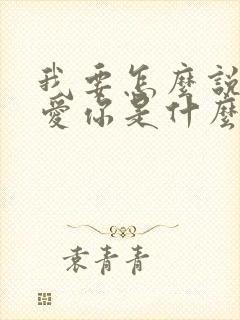 我要怎麼說
愛你是什麼
袁青青